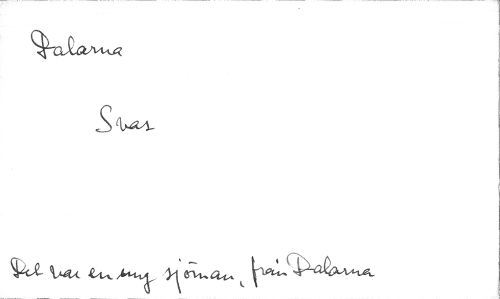 Dalarna
Svas
Det var en ung sjöman, från Dalarna